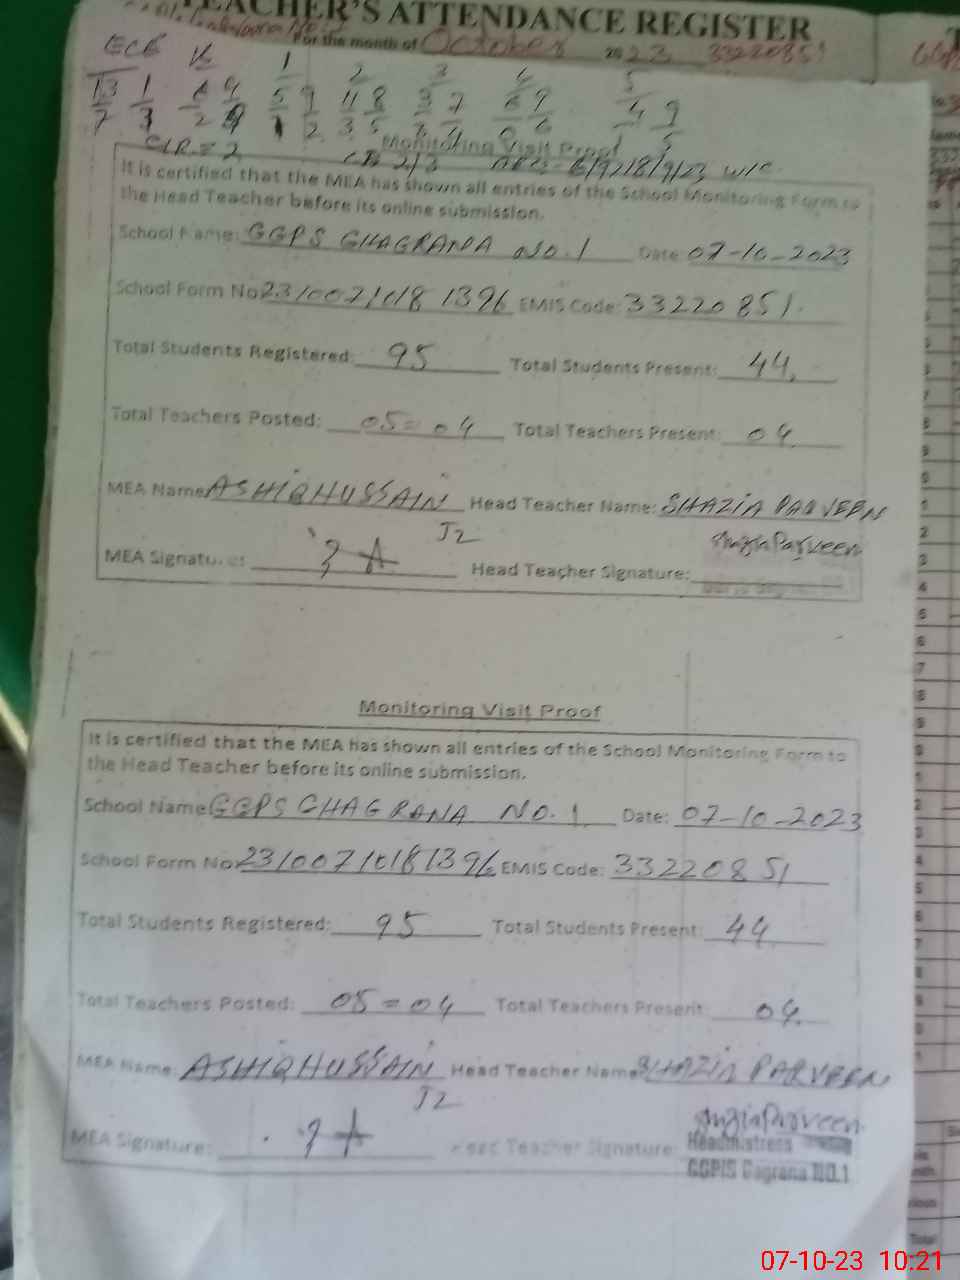 TEACHER'S ATTENDANCE REGISTER
For the month of October 2023 33220851
ECE
1 2 3 4 5
CLR = 2
Monitoring Visit Proof
It is certified that the MEA has shown all entries of the School Monitoring Form to
the Head Teacher before its online submission.
School Name: GGPS GHAGRANA NO.1 Date: 07-10-2023
School Form No 2310071018 1396 EMIS Code: 33220851.
Total Students Registered: 95 Total Students Present: 44
Total Teachers Posted: 05=04 Total Teachers Present: 04
MEA Name: ASHIQ HUSSAIN Head Teacher Name: SHAZIA PARVEEN
J2
MEA Signature: Head Teacher Signature:
Monitoring Visit Proof
It is certified that the MEA has shown all entries of the School Monitoring Form to
the Head Teacher before its online submission.
School Name: GGPS GHAGRANA NO.1 Date: 07-10-2023
School Form No: 23100710181396 EMIS Code: 33220851
Total Students Registered: 95 Total Students Present: 44
Total Teachers Posted: 05=04 Total Teachers Present: 04.
MEA Name: ASHIQ HUSSAIN Head Teacher Name: SHAZIA PARVEEN
J2
MEA Signature: Head Teacher Signature:
Headmistress
GGPS Gagrana NO.1
07-10-23 10:21